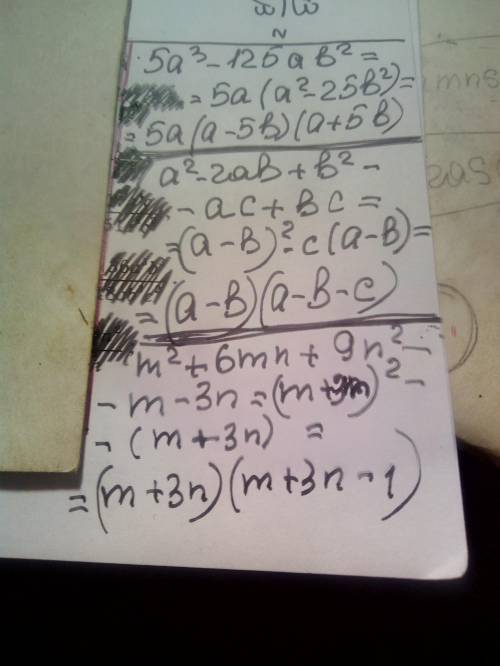 5a³ - 125ab² =
= 5a(a² - 25b²) =
= 5a(a - 5b)(a + 5b)
a² - 2ab + b² -
- ac + bc =
= (a - b)² - c(a - b) =
= (a - b)(a - b - c)
m² + 6mn + 9n² -
- m - 3n = (m + 3n)² -
- (m + 3n) =
= (m + 3n)(m + 3n - 1)